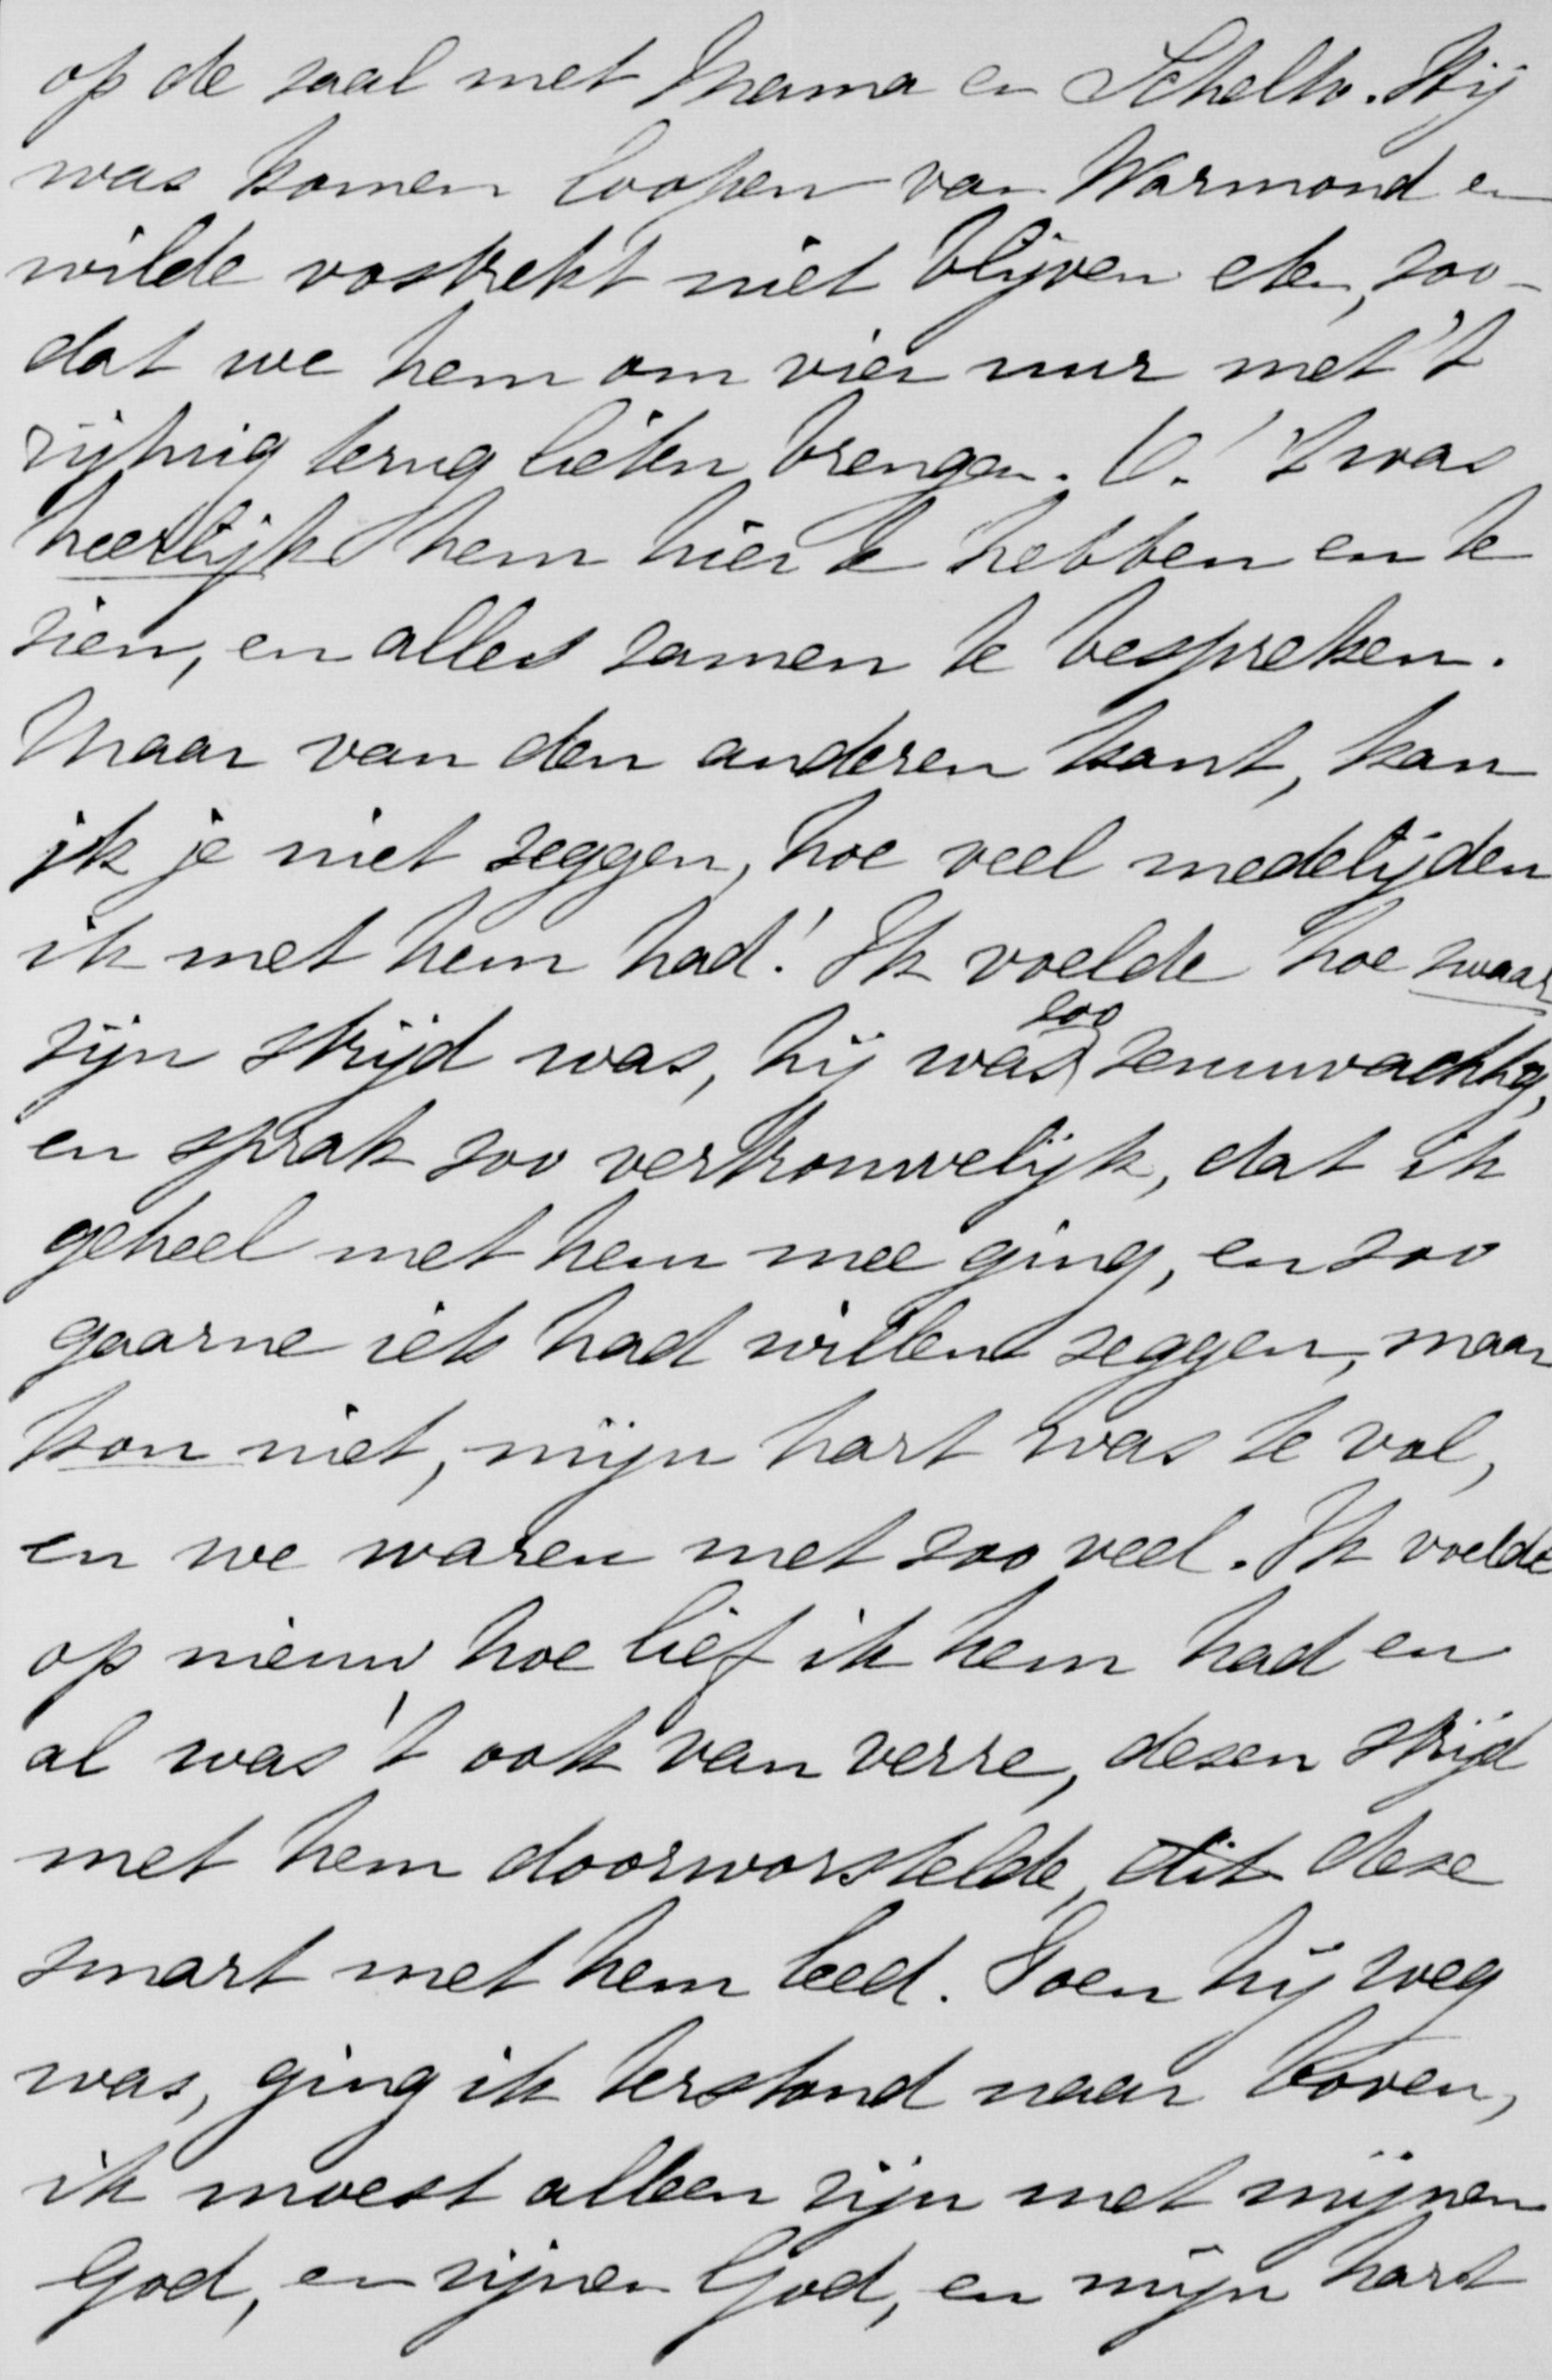 op de zaal met Mama en Schelto. Hij
was komen loopen van Warmond en
wilde vostrekt niet blijven eten, zoo-
dat we hem om vier uur met 't
rijtuig terug lieten brengen. O! 't was
heerlijk hem hier te hebben en te
zien, en alles zamen te bespreken.
Maar van den anderen kant, kan
ik je niet zeggen, hoe veel medelijden
ik met hem had! Ik voelde hoe zwaar
zijn strijd was, hij was zoo zenuwachtig,
en sprak zoo vertrouwelijk, dat ik
geheel met hem mee ging, en zoo
gaarne iets had willen zeggen, maar
kon niet, mijn hart was te vol,
en we waren met zoo veel. Ik voelde
op nieuw hoe lief ik hem had en
al was 't ook van verre, dezen strijd
met hem doorworstelde, dit deze
smart met hem leed. Toen hij weg
was, ging ik terstond naar boven,
ik moest alleen zijn met mijnen
God, en zijnen God, en mijn hart